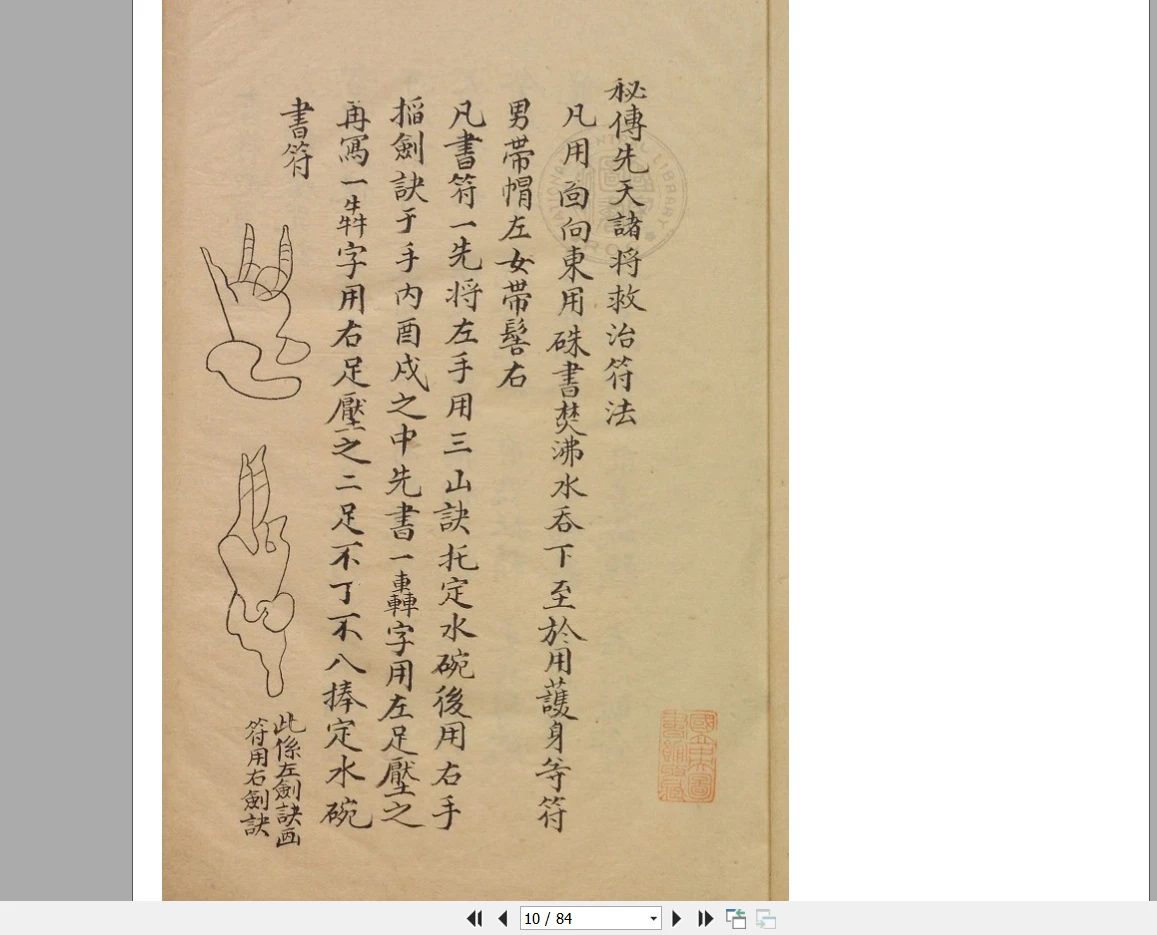 秘傳先天諸将救治符法
凡用面向東用硃書焚沸水吞下至於用護身等符
男帶帽左女帶髻右
凡書符一先将左手用三山訣托定水碗後用右手
掐劍訣于手內酉戌之中先書一轟字用左足壓之
再寫一犇字用右足壓之二足不丁不八捧定水碗
書符
此係左劍訣画
符用右劍訣
國立中央圖
書館收藏
NATIONAL CENTRAL LIBRARY
10 / 84